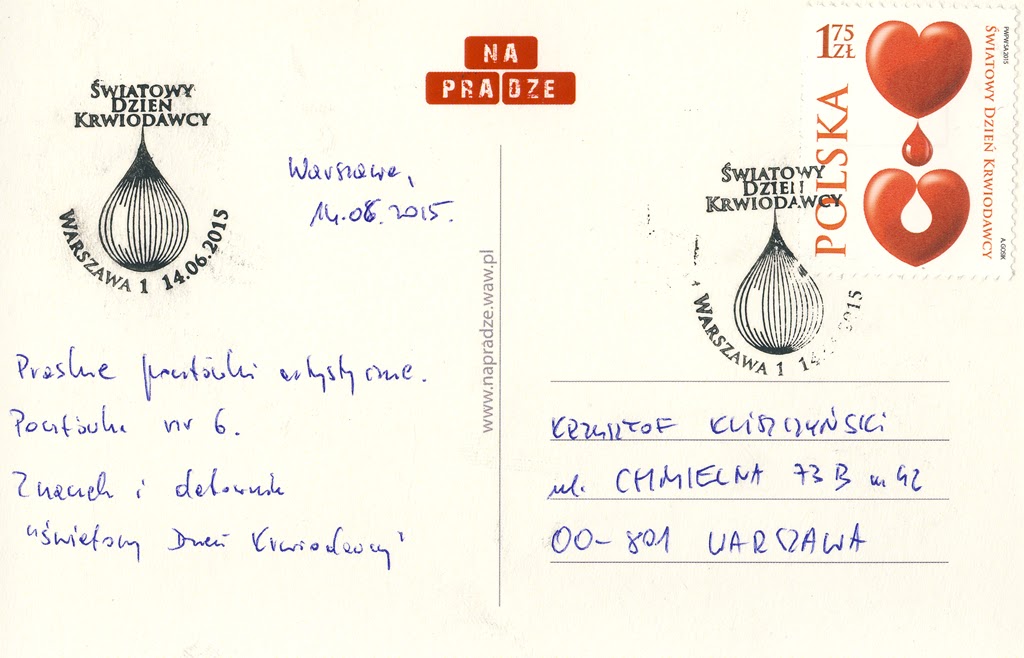 NA
PRADZE
ŚWIATOWY
DZIEŃ
KRWIODAWCY
WARSZAWA 1 14.06.2015
Warszawa,
14.06.2015.
Praskie pocztówki artystyczne.
Pocztówka nr 6.
Znaczek i datownik
"Światowy Dzień Krwiodawcy"
www.napradze.waw.pl
1 75
ZŁ
POLSKA
ŚWIATOWY DZIEŃ KRWIODAWCY
PWPW SA 2015
ŚWIATOWY
DZIEŃ
KRWIODAWCY
WARSZAWA 1 14. 2015
KRZYSZTOF KLISZCZYŃSKI
ul. CHMIELNA 73B m 42
00-801 WARSZAWA